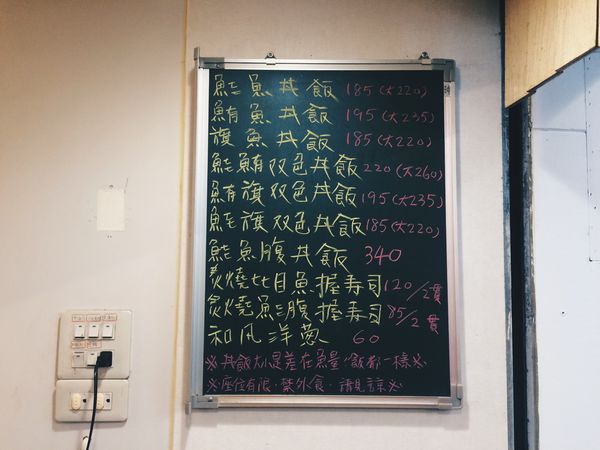 鮭魚丼飯 185(大220)
鮪魚丼飯 195(大235)
旗魚丼飯 185(大220)
鮭鮪双色丼飯 220(大260)
鮪旗双色丼飯 195(大235)
鮭旗双色丼飯 185(大220)
鮭魚腹丼飯 340
炙燒比目魚握寿司 120/2貫
炙燒鮭腹握寿司 85/2貫
和风洋葱 60
※丼飯大小是差在魚量,飯都一樣※
※座位有限.禁外食.請見諒※